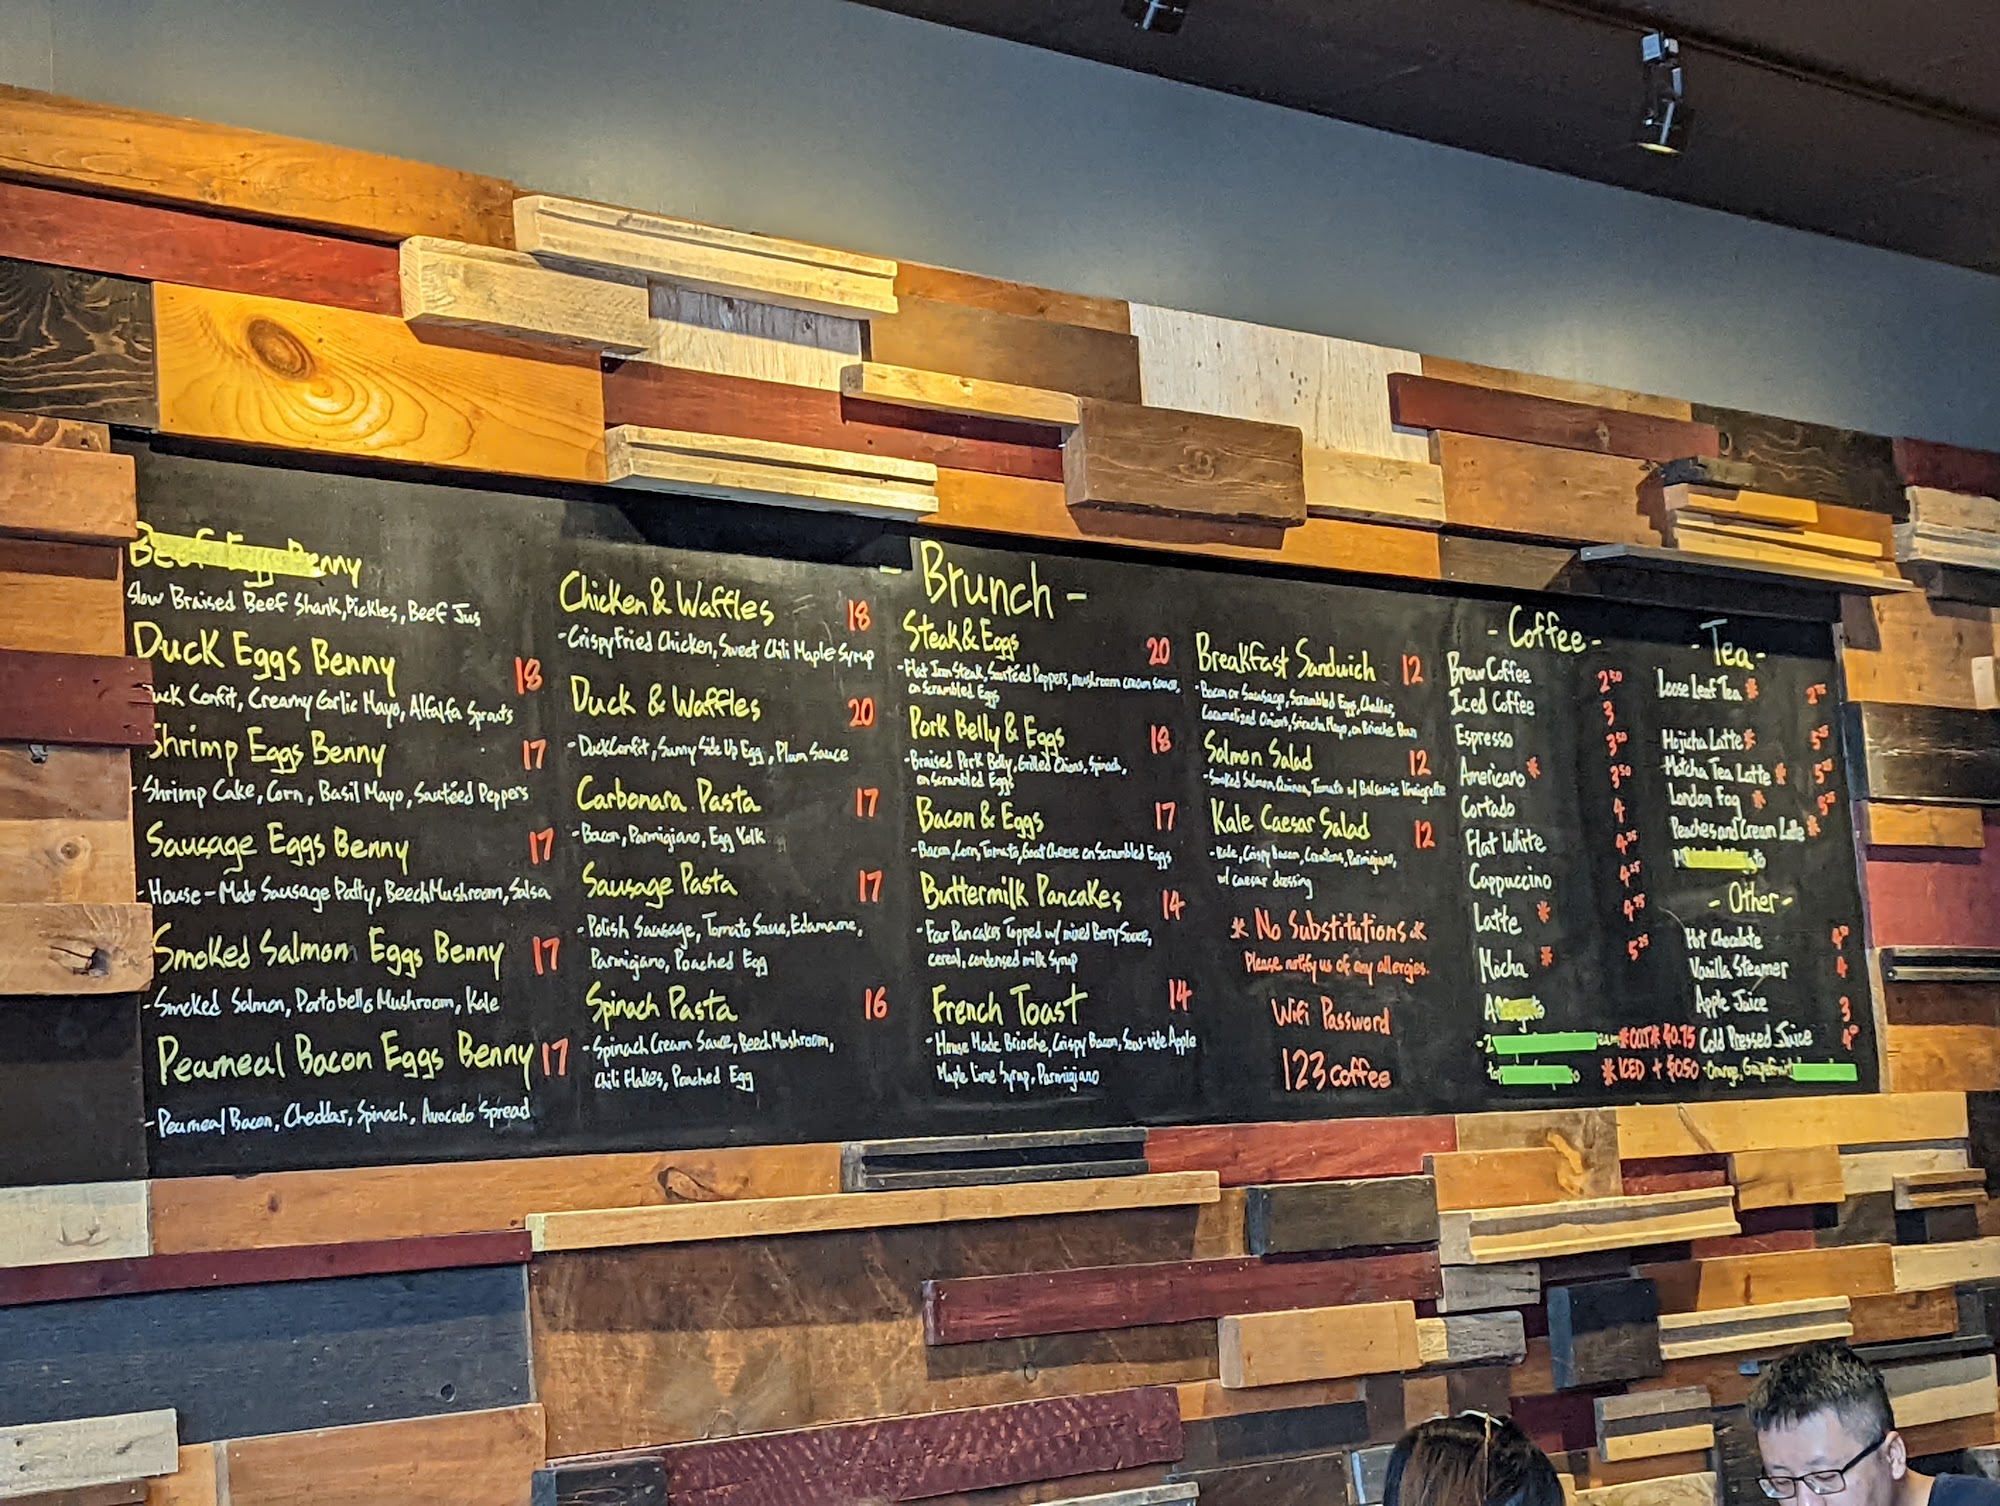 - Brunch -
Beef Eggs Benny
Slow Braised Beef Shank, Pickles, Beef Jus
Duck Eggs Benny 18
Duck Confit, Creamy Garlic Mayo, Alfalfa Sprouts
Shrimp Eggs Benny 17
- Shrimp Cake, Corn, Basil Mayo, Sautéed Peppers
Sausage Eggs Benny 17
- House-Made Sausage Patty, Beech Mushroom, Salsa
Smoked Salmon Eggs Benny 17
- Smoked Salmon, Portobello Mushroom, Kale
Peameal Bacon Eggs Benny 17
- Peameal Bacon, Cheddar, Spinach, Avocado Spread
Chicken & Waffles 18
- Crispy Fried Chicken, Sweet Chili Maple Syrup
Duck & Waffles 20
- Duck Confit, Sunny Side Up Egg, Plum Sauce
Carbonara Pasta 17
- Bacon, Parmigiano, Egg Yolk
Sausage Pasta 17
- Polish Sausage, Tomato Sauce, Edamame,
Parmigiano, Poached Egg
Spinach Pasta 16
- Spinach Cream Sauce, Beech Mushroom,
Chili Flakes, Poached Egg
Steak & Eggs 20
- Flat Iron Steak, Sautéed Peppers, mushroom cream sauce,
on Scrambled Eggs
Pork Belly & Eggs 18
- Braised Pork Belly, Grilled Onions, Spinach,
on Scrambled Eggs
Bacon & Eggs 17
- Bacon, Corn, Tomato, Goat Cheese on Scrambled Eggs
Buttermilk Pancakes 14
- Four Pancakes Topped w/ mixed Berry Sauce,
cereal, condensed milk Syrup
French Toast 14
- House Made Brioche, Crispy Bacon, Sous-vide Apple
Maple Lime Syrup, Parmigiano
Breakfast Sandwich 12
- Bacon or Sausage, Scrambled Eggs, Cheddar,
Caramelized Onions, Sriracha Mayo, on Brioche Bun
Salmon Salad 12
- Smoked Salmon, Tomato w/ Balsamic Vinaigrette
Kale Caesar Salad 12
- Kale, Crispy Bacon, Croutons, Parmigiano,
w/ caesar dressing
* No Substitutions *
Please notify us of any allergies.
Wifi Password
123coffee
- Coffee -
Brew Coffee 2.50
Iced Coffee 3
Espresso 3.50
Americano * 3.50
Cortado 4
Flat White 4.25
Cappuccino 4.25
Latte * 4.75
Mocha * 5.25
*OAT* $0.75
*ICED + $0.50
- Tea -
Loose Leaf Tea * 2.75
Hojicha Latte * 5.25
Matcha Tea Latte * 5.25
London Fog * 5.25
Peaches and Cream Latte *
- Other -
Hot Chocolate 4.50
Vanilla Steamer 4
Apple Juice 3
Cold Pressed Juice
- Orange, Grapefruit